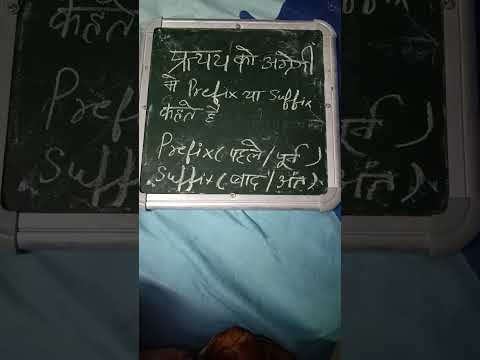 प्रत्यय को अंग्रेजी
मे Prefix या Suffix
कहते है
Prefix(पहले/पूर्व)
Suffix(बाद/अंत)